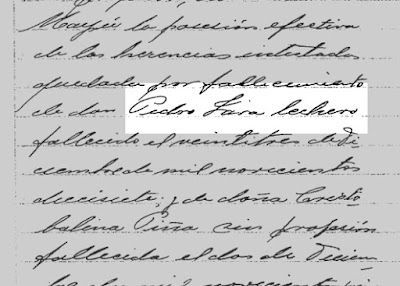 Maipú la posesión efectiva
de las herencias intestadas
quedada por fallecimiento
de don Pedro Jara lechero
fallecido el veintitres de di-
ciembre de mil novecientos
diecisiete; y de doña Cristo-
balina Piña sin profesión
fallecida el dos de Diciem-